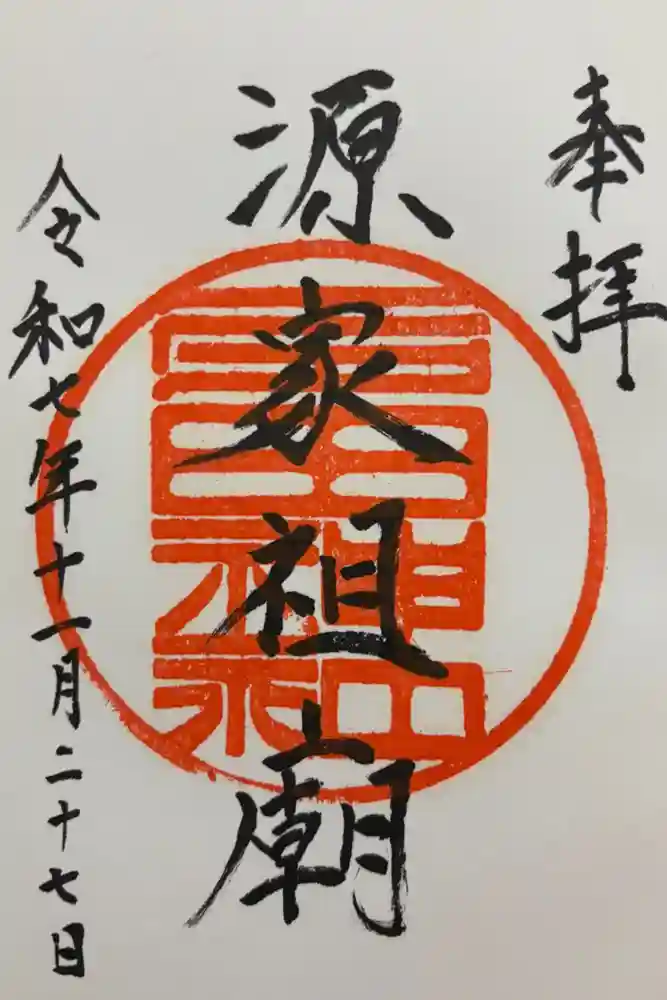 奉拝
源家祖廟
令和七年十一月二十七日